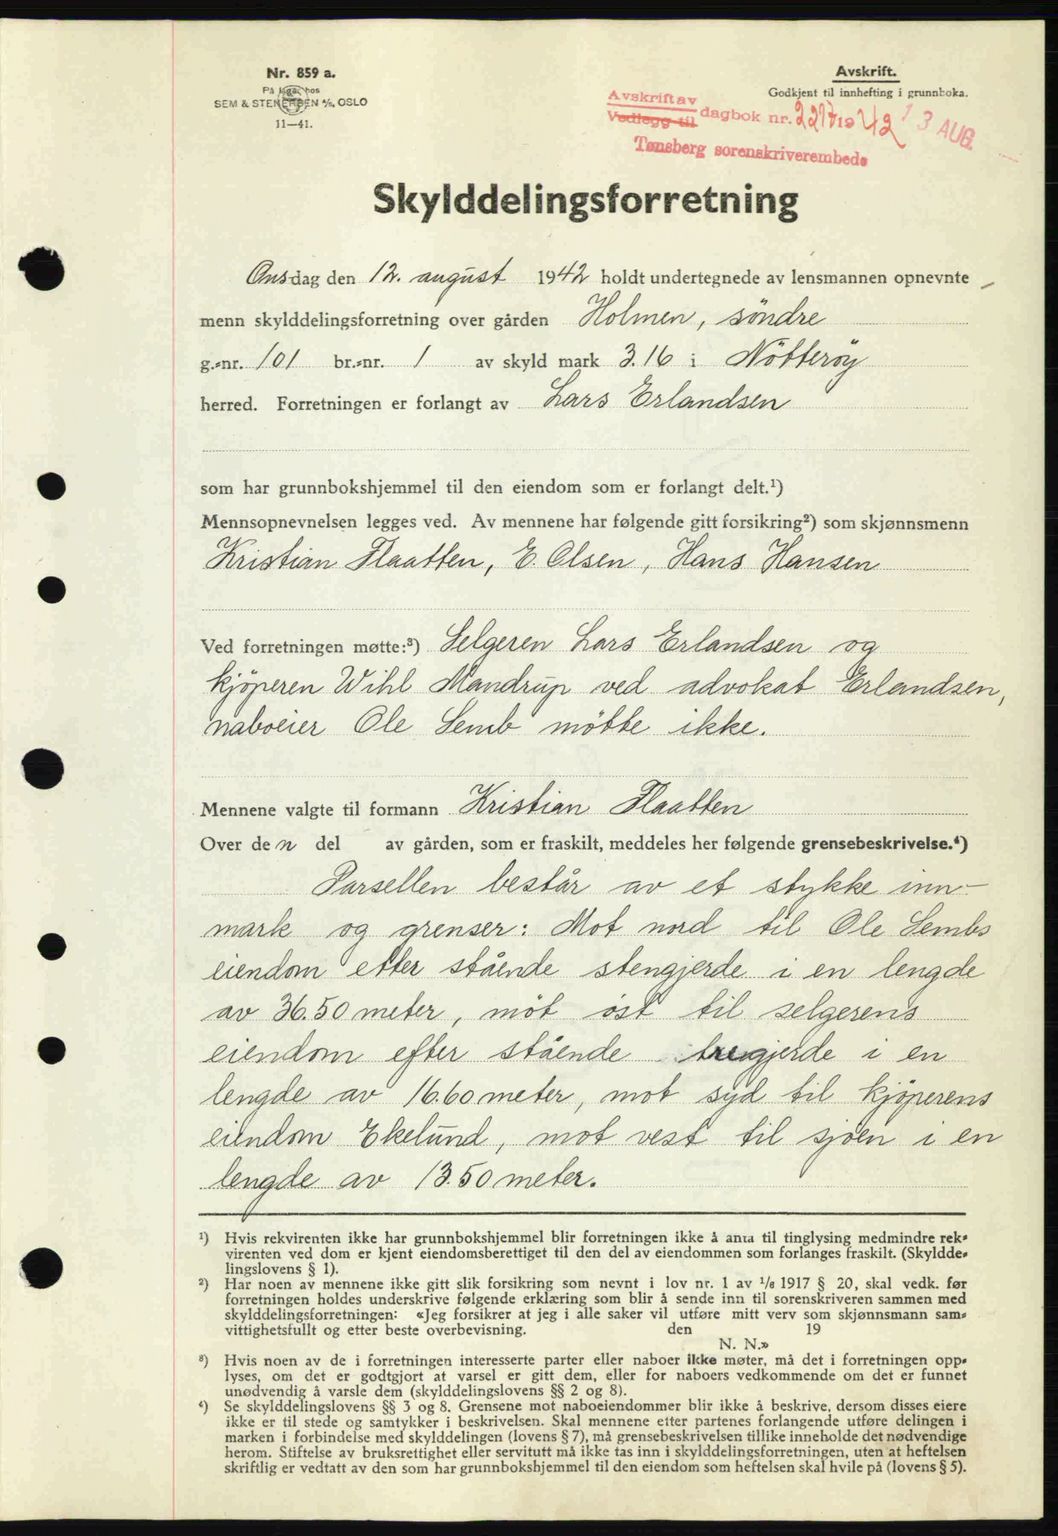 Nr. 859 a.
På lager hos
SEM & STENERSEN A/S, OSLO
11—41.
Avskrift.
Godkjent til innhefting i grunnboka.
Avskrift av
Vedlegg til dagbok nr. 2217 1942 13 AUG.
Tønsberg sorenskriverembede
Skylddelingsforretning
Onsdag den 12. august 1942 holdt undertegnede av lensmannen opnevnte
menn skylddelingsforretning over gården Holmen, søndre
g.-nr. 101 br.-nr. 1 av skyld mark 3.16 i Nötteröy
herred. Forretningen er forlangt av Lars Erlandsen
som har grunnbokshjemmel til den eiendom som er forlangt delt.¹)
Mennsopnevnelsen legges ved. Av mennene har følgende gitt forsikring²) som skjønnsmenn
Kristian Flaatten, E. Olsen, Hans Hansen
Ved forretningen møtte:³) Selgeren Lars Erlandsen og
kjöperen Wihl Mandrup ved advokat Erlandsen,
naboeier Ole Semb mötte ikke.
Mennene valgte til formann Kristian Flaatten
Over den del av gården, som er fraskilt, meddeles her følgende grensebeskrivelse.⁴)
Parsellen består av et stykke inn-
mark og grenser: Mot nord til Ole Sembs
eiendom etter stående stengjerde i en lengde
av 36.50 meter, möt öst til selgerens
eiendom efter stående tregjerde i en
lengde av 16.60 meter, mot syd til kjöperens
eiendom Ekelund, mot vest til sjöen i en
lengde av 13.50 meter.
¹) Hvis rekvirenten ikke har grunnbokshjemmel blir forretningen ikke å anta til tinglysing medmindre rek-
virenten ved dom er kjent eiendomsberettiget til den del av eiendommen som forlanges fraskilt. (Skyldde-
lingslovens § 1).
²) Har noen av mennene ikke gitt slik forsikring som nevnt i lov nr. 1 av 1/8 1917 § 20, skal vedk. før
forretningen holdes underskrive følgende erklæring som blir å sende inn til sorenskriveren sammen med
skylddelingsforretningen: «Jeg forsikrer at jeg i alle saker vil utføre mitt verv som skjønnsmann sam-
vittighetsfullt og etter beste overbevisning. den 19
N. N.»
³) Hvis noen av de i forretningen interesserte parter eller naboer ikke møter, må det i forretningen opp-
lyses, om det er godtgjort at varsel er gitt dem, eller for naboers vedkommende om det er funnet
unødvendig å varsle dem (skylddelingslovens §§ 2 og 8).
⁴) Se skylddelingslovens §§ 3 og 8. Grensene mot naboeiendommer blir ikke å beskrive, dersom disses eiere
ikke er til stede og samtykker i beskrivelsen. Skal mennene etter partenes forlangende utføre delingen i
marken i forbindelse med skylddelingen (lovens § 7), må grensebeskrivelsen tillike inneholde det nødvendige
herom. Stiftelse av bruksrettighet eller servitutt må ikke tas inn i skylddelingsforretningen, uten at heftelsen
skriftlig er vedtatt av den som har grunnbokshjemmel til den eiendom som heftelsen skal hvile på (lovens § 5).